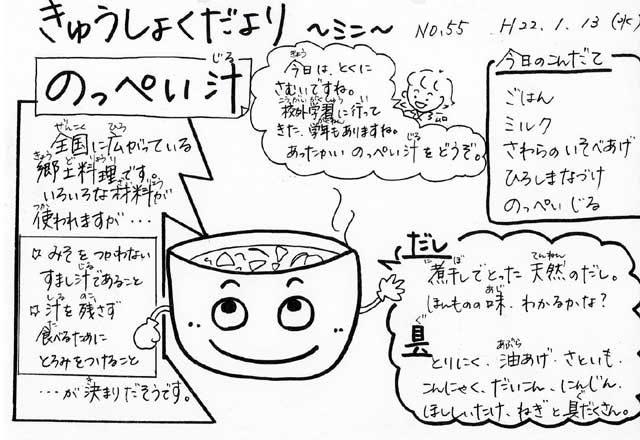 きゅうしょくだより ～ミニ～ NO.55 H22.1.13(水)
のっぺい汁
じる
全国に広がっている
郷土料理です。
いろいろな材料が
使われますが…
☆みそをつかわない
すまし汁であること
☆汁を残さず
食べるために
とろみをつけること
…が決まりだそうです。
今日は、とくに
さむいですね。
校外学習に行って
きた、学年もありますね。
あったかいのっぺい汁をどうぞ。
今日のこんだて
ごはん
ミルク
さわらのいそべあげ
ひろしまなづけ
のっぺいじる
だし
煮干しでとった天然のだし。
ほんものの味、わかるかな？
具
とりにく、油あげ、さといも、
こんにゃく、だいこん、にんじん、
ほししいたけ、ねぎと具だくさん。